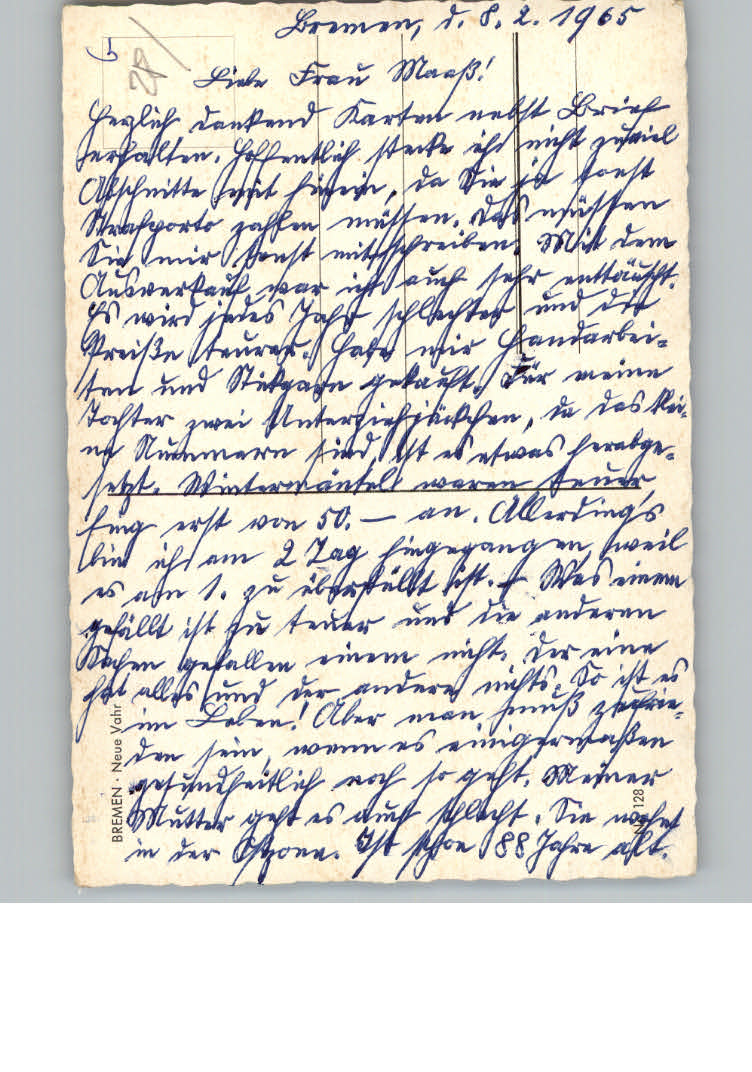 Bremen, d. 8. 2. 1965
Liebe Frau Maaß!
Herzlich dankend Karten nebst Brief
erhalten. Hoffentlich stecke ich nicht zuviel
Abschnitte mit hinein, da Sie ja sonst
Strafporto zahlen müssen. Das müssen
Sie mir sonst mitschreiben. Mit dem
Ausverkauf war ich auch sehr enttäuscht.
Es wird jedes Jahr schlechter und die
Preiße teurer. Habe mir Handarbei-
ten und Stikgarn gekauft. Für meine
Tochter zwei Unterziehjäckchen, da das klei-
ne Nummern sind, ist es etwas herabge-
setzt. Wintermäntel waren teuer,
fing erst von 50.— an. Allerdings
bin ich am 2 Tag hingegangen, weil
es am 1. zu überfüllt ist. – Was einem
gefällt ist zu teuer und die anderen
Sachen gefallen einem nicht. Der eine
hat alles und der andere nichts. So ist es
im Leben! Aber man muß zufrie-
den sein, wenn es einigermaßen
gesundheitlich noch so geht. Meiner
Mutter geht es auch schlecht. Sie wohnt
in der Ostzone. Ist schon 88 Jahre alt.
BREMEN · Neue Vahr
128